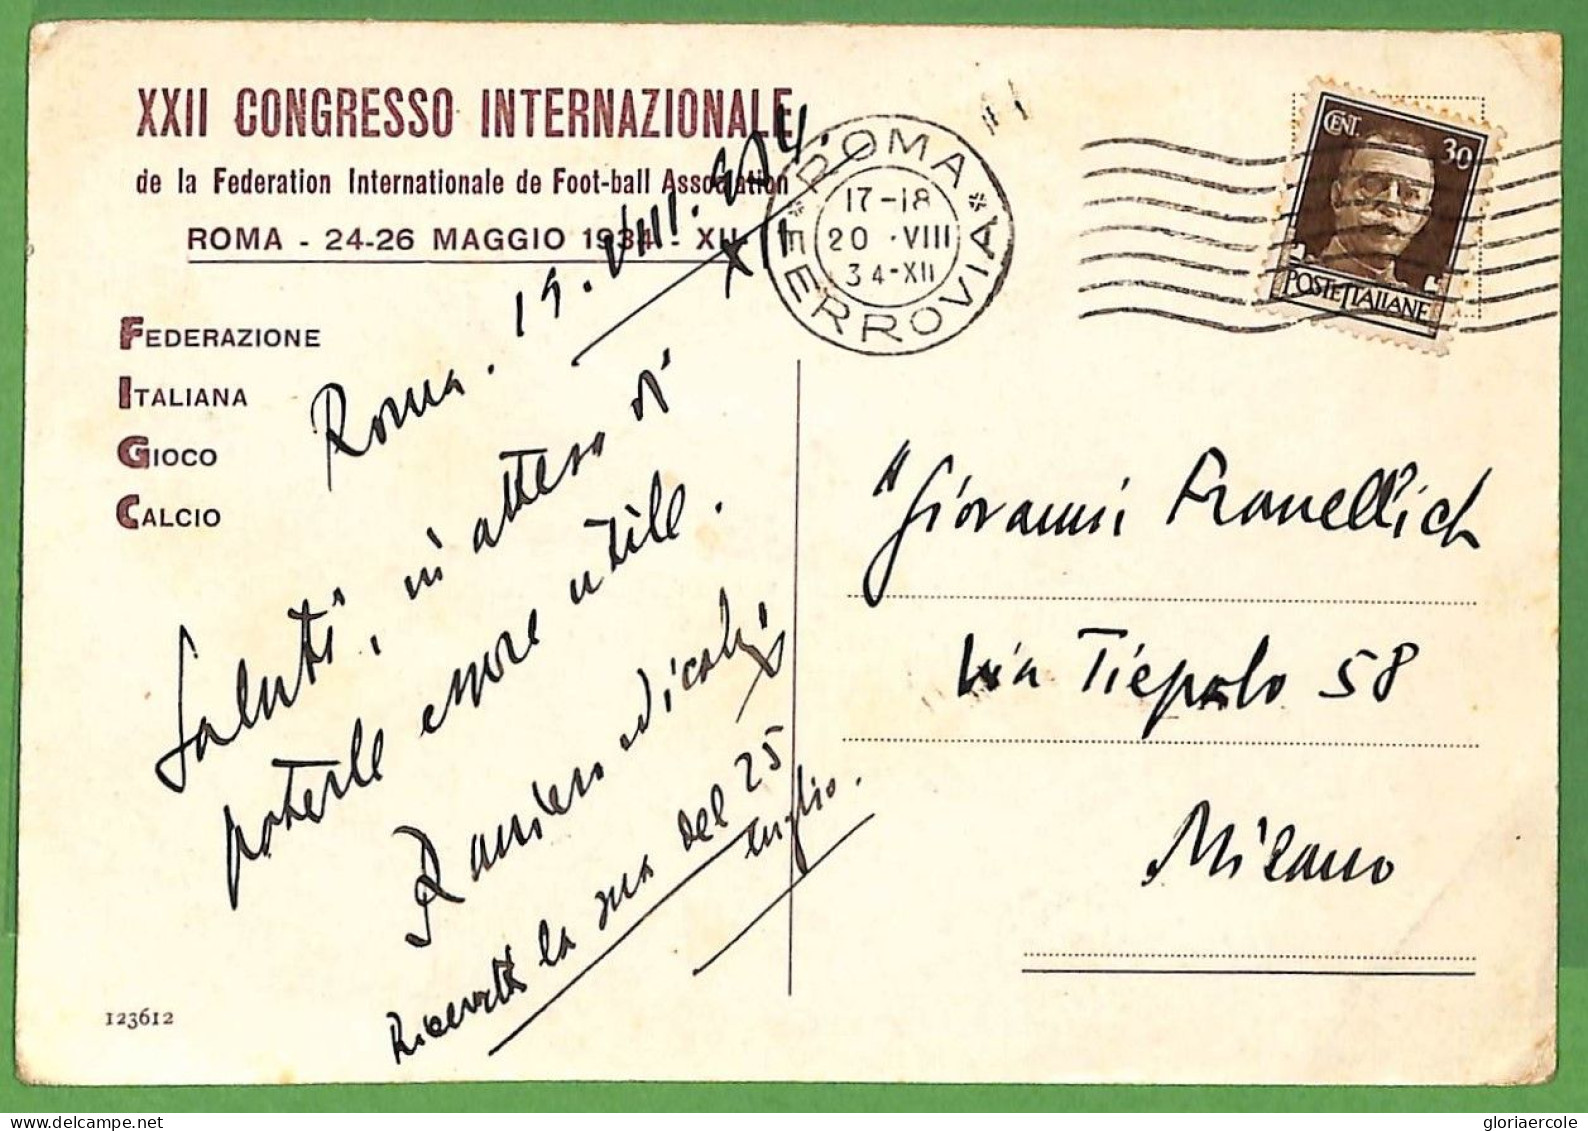 XXII CONGRESSO INTERNAZIONALE
de la Federation Internationale de Foot-ball Association
ROMA - 24-26 MAGGIO 1934 - XII
FEDERAZIONE
ITALIANA
GIOCO
CALCIO
Roma. 19.VIII.934.
XII
Saluti, in attesa di
poterle essere utile.
Raniero Nicolai
Ricevetti la sua del 25
luglio.
123612
ROMA
FERROVIA
17-18
20 · VIII
34-XII
CENT. 30
POSTE ITALIANE
Giovanni
Via Tiepolo 58
Milano
gloriaercole